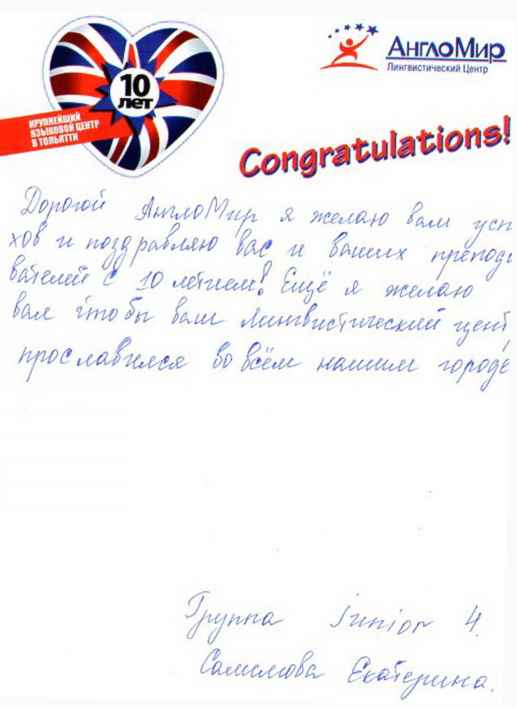 10
лет
КРУПНЕЙШИЙ
ЯЗЫКОВОЙ ЦЕНТР
В ТОЛЬЯТТИ
АнглоМир
Лингвистический Центр
Congratulations!
Дорогой АнглоМир я желаю вам усп
хов и поздравляю вас и ваших препода
вателей с 10 летием! Ещё я желаю
вам чтобы ваш Лингвистический цент
прославился во всём нашем городе
Группа Junior 4.
Екатерина.